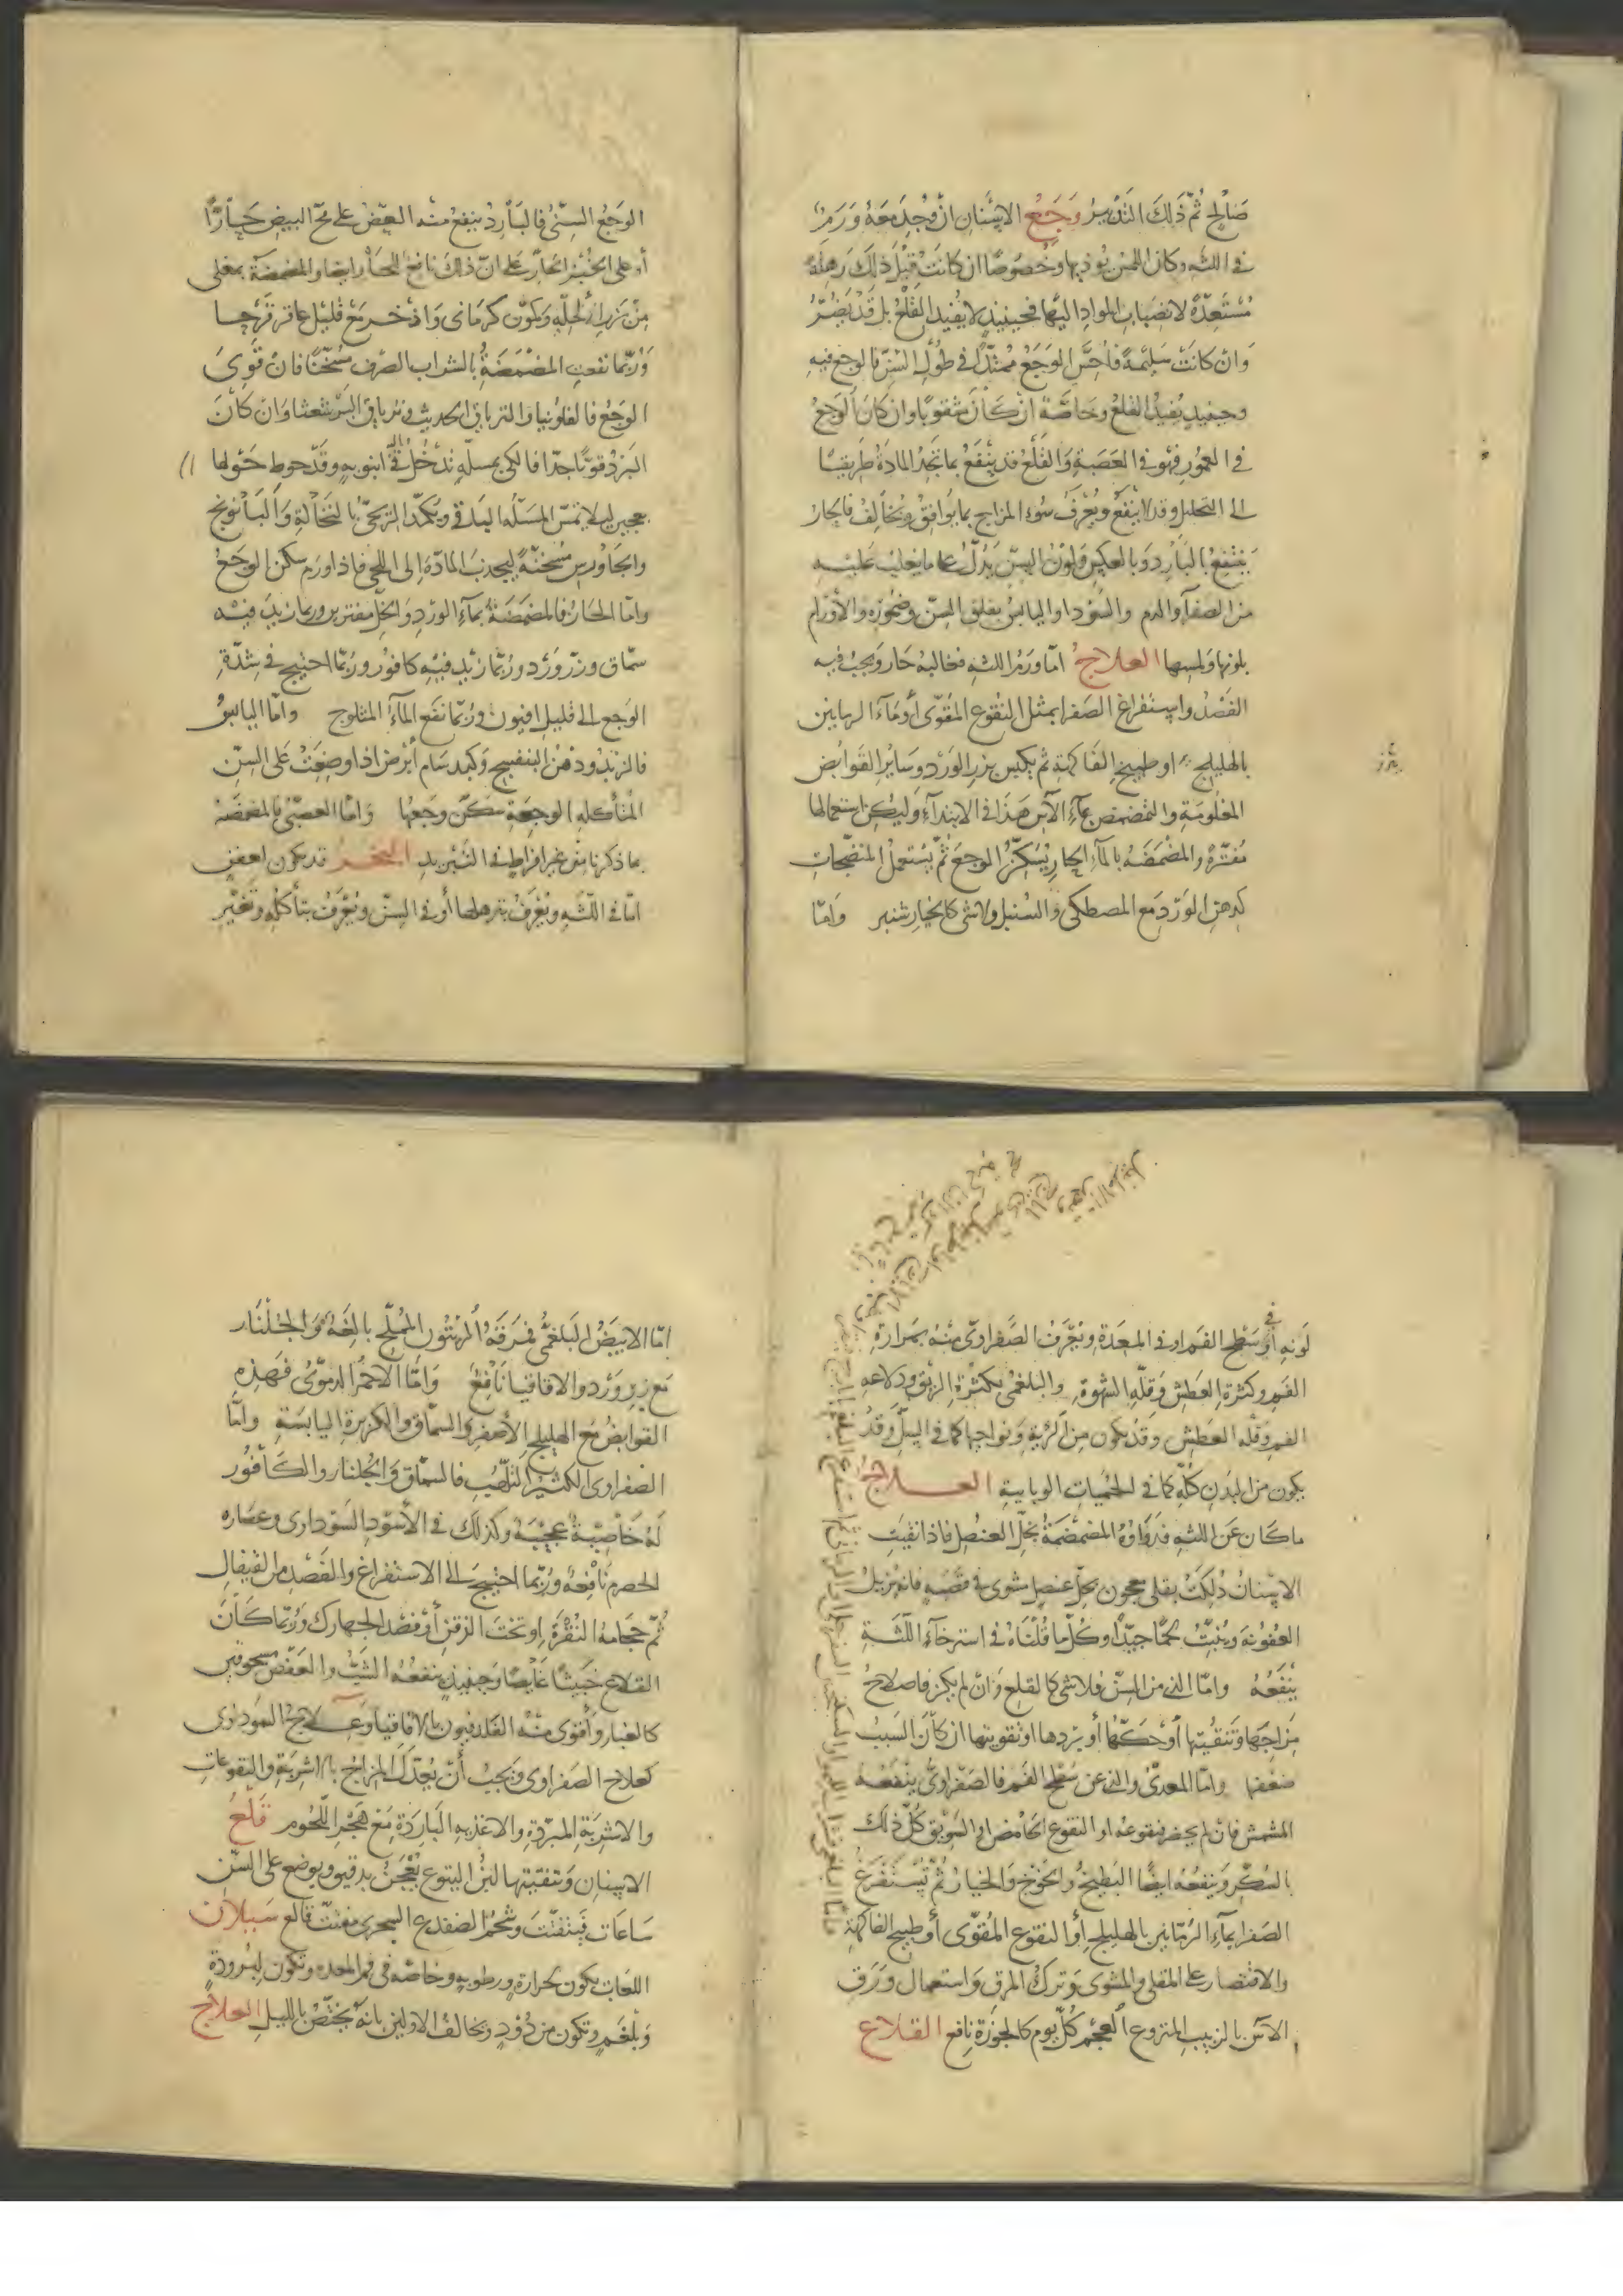 صَالِحٍ ثُمّ ذَلِكَ التَدْبيرُ وَجَعُ الاسْنَان ان وُجِدَ مَعَهُ وَرَمٌ
في اللثه وكان اللمس يوذيها وخصُوصًا ان كانَتْ قَبْلَ ذلكَ رَهِلَةً
مُسْتَعِدّةً لانصبَاب المواد اليْهَا فحينيذٍ لا يُفيد القَلْعُ بل قَدْ يَضُرّ
وَان كانَتْ سَليمةً فاحَسَّ الوَجَع ممْتَدًّا في طُول السِّنّ فالوجع فيهِ
وحينيذٍ يُفيدُ القلعُ وخاصَّةً انْ كَانَ مثقوبًا وان كانَ الوَجعُ
في العمُور فهُو في العَصَبةِ وَالقَلْعُ قد يَنْفَعُ بما تجِدُ المادةُ طَريقًا
الى التحليل وقد لا ينفَعُ ويُعْرفُ سُوء المزاج بما يُوافِقُ ويُخالِفُ فالحَار
يَنْتفِعُ بالبَارد وَبالعكس وَلوْنُ السِّنّ يَدُلّ على ما يَغلِبُ عَليْهِ
من الصفرآ والدم والسَّوْدا واليابسُ بقلق السِّنّ وضُمُوره والأوْرام
بلونها وَلمسها العلاجُ امّا وَرَمُ اللثه فغالبهُ حَار وَيجبُ فيه
الفَصْدُ واسْتفراغ الصَفرا بمثْل النَّقُوع المُقوّى أوْ مَآء الرمّانين
بالهليلج اوْ طبيخ الفَاكهَةِ ثمّ يكبس ببزر الوَرْد وسَاير القَوابض
المعْلومَةِ والتمضمض بمآء الآس هَذَا في الابتدآء وليكن استعمالها
مُفتّرةً والمضْمَضَه بالمآء الحار يُسَكّن الوجعَ ثُمّ يُستعمل المنضجَات
كدهن الوَرْدِ مع المصطكى وَالسُنبل ولا شئ كالخيار شنبر وَامّا
يبزر
الوَجَعُ السِنّىُ فالبَاردُ ينفعُ منْه العَضّ عَلى مُحّ البيض حَارًّا
أوْ على الخُبْز الحَارّ عَلى انّ ذلكَ نافعٌ للحَارّ ايضًا والمضمضَةُ بمغلى
مِنْ بزر الحُلبه وَكمّون كرمَانى وَاذْخر مَع قليل عاقر قَرْحا
وَرُبّما نفعتِ المضْمَضَةُ بالشراب الصّرْف مُسَخّنًا فانْ قَوِىَ
الوَجعُ فالفلونيا والترياق الحديث وَترياق البَرشعثا وَان كَانَ
البَرْدُ قويًّا جدّا فالكَىّ بمسلّهٍ تدْخُل فى انبُوبهٍ وَقد حُوط حَوْلها
بعجينٍ ليلا تمسّ المسَلّه الباقى ويكمّد الريحىّ بالنخَالةِ وَالبَابُونج
والجَاوْرس مُسخّنةً ليجذبَ المادّةَ الى اللحى فاذا وَرمَ سَكن الوَجَعُ
وامّا الحَارّ فالمضمَضَةُ بمآء الوَرْد وَالخلّ مفترين وربما زيدَ فيْه
سُمّاق وبزْر وَرْد ورُبّما زيْدَ فيْه كافور ورُبّما احتيج في شِدّةِ
الوَجع الى قليلِ افيُون وَرُبّما نفَع المآءُ المثلوج وامّا اليابسُ
فالزبْد وَدُهْنُ البنفسج وَكبد سَام أبْرص اذا وضِعَتْ عَلى السِّنّ
المُتأكله الوجِعَةِ سَكّن وَجعهَا وَامّا العصَبىُّ فالمضمَضَة
بما ذكرنا مِنْ غير افراطٍ في التبْريدِ البخر قد يكون لعفنٍ
امّا في اللّثه ويُعْرَفُ بترهلها أوْ في السِّنّ ويُعْرَفُ بتأكلِه وتَغيّر
لَونه أوْ فى سَطح الفَم او في المعدَة ويُعْرَفُ الصَّفراوىّ منْهُ بمرَارة
الفَم وكثرة العَطش وَقلّةِ الشهوةِ والبلغمى بكثْرةِ الرّيق وَدلاعَةِ
الفم وَقلّهِ العَطش وقدْ يكون من الرّئهِ وَنواحيها كما فى السِّلّ وَقدْ
يكون من البَدنِ كُلّه كما فى الحُمّيات الوَبايية العـــلاجُ
ما كَانَ عَن اللثهِ فدَوَاؤهُ المضمَضَةُ بخلّ العنصُل فاذا نقيَتِ
الاسْنانُ دُلكتْ بقلى معجون بخلّ عنصل مشوى فى قصَبهٍ فانه يُزيلُ
العفُونةَ ويُنْبِتُ لحْمًا جيّدًا وكُلّ ما قُلْنَاهُ في استرخآءِ اللّثَةِ
يَنْفَعُهُ وامّا الذى من السِّنّ فلا شئ كالقلع وَانْ لم يكن فاصلاحُ
مِزَاجَها وَتنقيُتها أوْ حَكّها أو بَرْدها او تقويتها ان كانَ السَببُ
ضعْفها وامّا المعدىّ والذى عن سطح الفَم فالصَفْراوىُّ ينْفعُهُ
المشمش فان لم يحضر فنقوعهُ او النقوع الحَامض او السَويق كُلّ ذلكَ
بالسُكّر وَينفعُهُ ايضًا البَطيخُ والخَوْخ وَالخيَارُ ثُمّ يُستَفْرَغُ
الصَفرا بمآءِ الرُمّانين بالهليلج أو النقوع المُقوّى أوْ طبيخ الفاكهةِ
والاقتصار على المقلى والمشوى وَتركُ المرَق وَاستعمال وَرَق
الآس بالزبيب المنزوع العَجَم كُلّ يوم كالجوزَة نافع القلاع
امّا الابيَضُ البَلغمىّ فَمرَقَةُ الزيْتُون المُمَلّح بالغَةٌ وَالجُلّنَار
مَع بزر وَرْد والاقاقيا نَافعٌ وَامّا الاحمَرُ الدمَوىّ فَهَذِهِ
القوابضُ مَع الهليلج الأصفر وَالسّمّاق والكزبرة اليابسَةِ وامّا
الصفراوى الكثيْر التلهّب فالسمّاق وَالجلنار والكَافُور
لَهُ خَاصيَةٌ عجيْبَة وكذلكَ في الأسْودِ السَوْداوى وعصَاره
الحصرم نافعَهٌ ورُبّما احْتيجَ الى الاستفراغ والفَصْدِ من القيفال
ثُمّ حجَامه النُقْرَة اوْ تحْت الذقن أوْ فصْدُ الجهارك وَرُبّما كَانَ
القلاع خَبيثًا غَايصًا وَحينيذٍ ينفعُهُ الشبّ والعَفص مسحوقين
كالغبار وَأقوى منْه القلديقون بالاقاقيا وَعـلاجُ السّوداوى
كعلاج الصَفراوى وَيجبُ أنْ يُعدّل المزاج بالاشربَةِ والنقوعاتِ
والاشربَةِ المبرّدةِ والاغذيهِ البَاردَة مَعَ هَجْر اللّحُوم قَلعُ
الاسنانِ وَتفتيتها لبنُ اليتوع يُعْجَنُ بدقيق ويوضع على السّن
سَاعَات فيَتفتّت وَشَحْمُ الضفدع الشجرى مفتّت قالع سَيلان
اللعَاب يكون لحرارةٍ ورطوبهٍ وخاصّه في فم المعده وتكون لبُرودةٍ
وَبلغمٍ وتكون من دُوْدٍ ويخالف الاولين بانّه يختَصّ بالليلِ العلاجُ